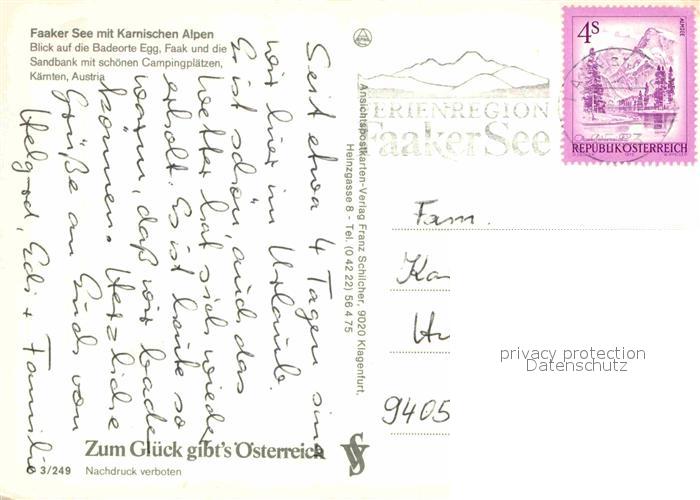 Faaker See mit Karnischen Alpen
Blick auf die Badeorte Egg, Faak und die
Sandbank mit schönen Campingplätzen,
Kärnten, Austria
Seit etwa 4 Tagen sind
wir hier im Urlaub.
Es ist schön, auch das
Wetter hat sich wieder
erholt. Es ist heute so
warm, daß wir baden
können. Herzliche
Grüße an Euch von
Helgard, Edi + Familie
Zum Glück gibt's Österreich
3/249 Nachdruck verboten
Ansichtspostkarten-Verlag Franz Schilcher, 9020 Klagenfurt,
Heinzgasse 8 - Tel. (0 42 22) 56 4 75
FERIENREGION
Faaker See
4S
ALMSEE
REPUBLIK ÖSTERREICH
Fam.
Ka
9405
privacy protection
Datenschutz